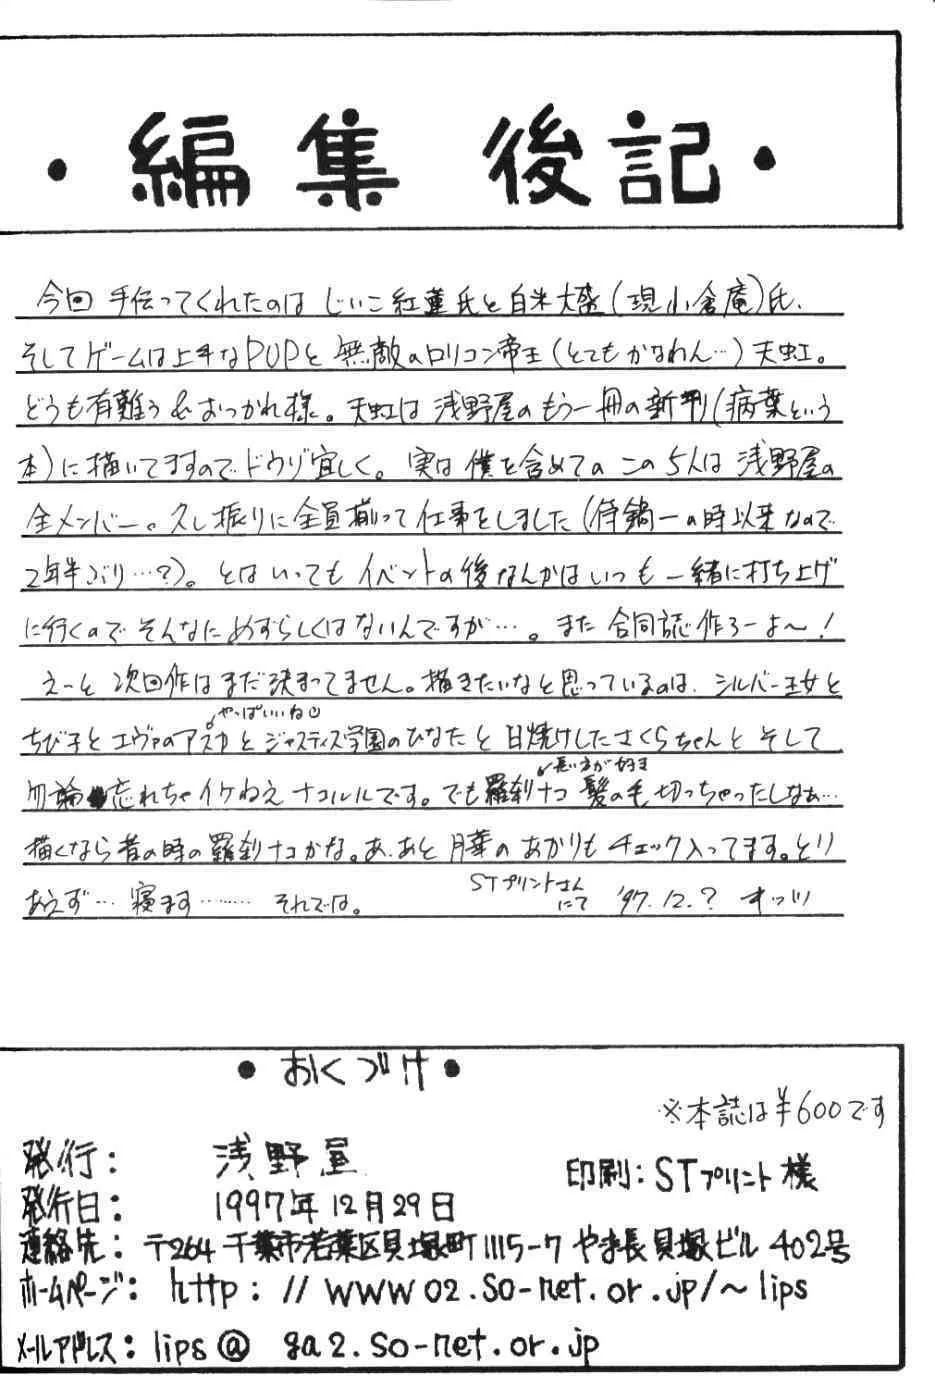 ・編集後記・
今回 手伝ってくれたのは じぃこ紅蓮氏と白米大盛(現小倉庵)氏、
そしてゲームは上手なPUPと 無敵のロリコン帝王(とてもかなわん…)天虹。
どうも有難う&おつかれ様。天虹は 浅野屋のもう一冊の新刊(病葉という
本)に描いてますのでドウゾ宜しく。実は僕を含めてのこの5人は浅野屋の
全メンバー。久し振りに全員揃って仕事をしました(侍鍋一の時以来なので
2年半ぶり…?)。とはいってもイベントの後なんかはいつも一緒に打ち上げ
に行くのでそんなにめずらしくはないんですが…。また合同誌作ろーよ〜!
えーと 次回作はまだ決まってません。描きたいなと思っているのは、シルバー王女と
やっぱいいね
ちび子とエヴァのアスカとジャスティス学園のひなたと日焼けしたさくらちゃんとそして
長い方が好き
勿論 忘れちゃイケねえナコルルです。でも羅刹ナコ髪の毛切っちゃったしなぁ…
描くなら昔の時の羅刹ナコかな。あ、あと月華のあかりもチェック入ってます。とり
あえず…寝ます……… それでは。
STプリントさん
にて '97.12.? オッツ
・おくづけ・
※本誌は¥600です
発行: 浅野屋
印刷:STプリント様
発行日: 1997年12月29日
連絡先: 〒264 千葉市若葉区貝塚町1115-7 やま長貝塚ビル402号
ホームページ: http://www02.so-net.or.jp/~lips
メールアドレス: lips@ga2.so-net.or.jp